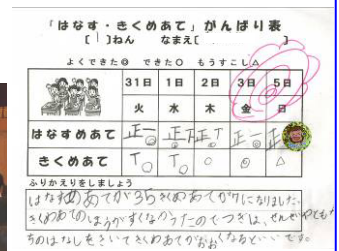 「はなす・きくめあて」がんばり表
[1]ねん なまえ[ ]
よくできた◎ できた○ もうすこし△
31日 1日 2日 3日 5日
火 水 木 金 日
はなすめあて 正一 正下 正丅 正一 正
きくめあて 丅○ 丅○ ○ ◎ △
ふりかえりをしましょう
はなすめあてが35きくめあてが7になりました。
きくめあてのほうがすくなかったのでつぎは、せんせいやともだ
ちのはなしをきいてきくめあてがおおくなるといいです。